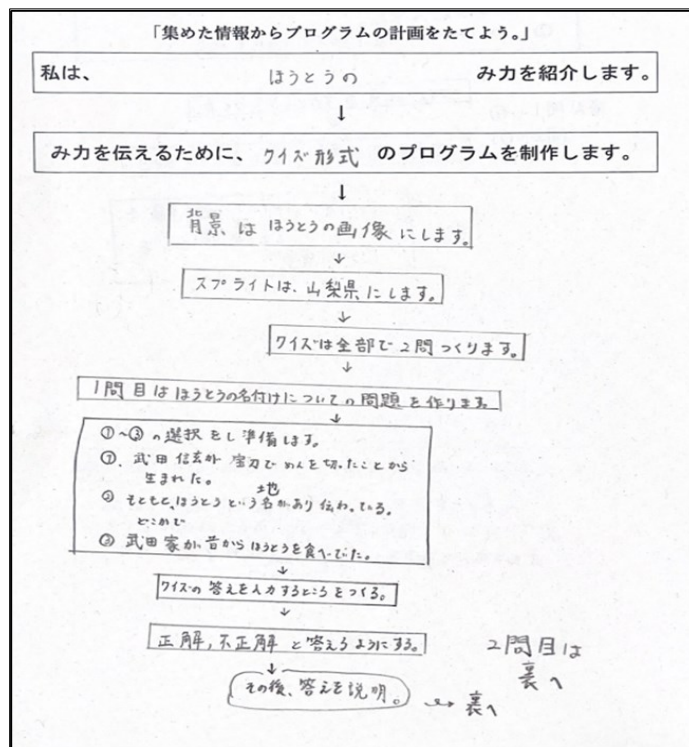 「集めた情報からプログラムの計画をたてよう。」
私は、 ほうとうの み力を紹介します。
↓
み力を伝えるために、 クイズ形式 のプログラムを制作します。
↓
背景は ほうとうの画像にします。
↓
スプライトは、山梨県にします。
↓
クイズは全部で2問つくります。
↓
1問目はほうとうの名付けについての問題を作ります。
↓
①~③の選択をし準備します。
①、武田信玄が宝刀でめんを切ったことから
生まれた。
地
② もともと、ほうとうという名があり伝わっている。
③ 武田家が昔からほうとうを食べていた。
↓
クイズの答えを入力するところをつくる。
↓
正解,不正解と答えるようにする。
↓
その後、答えを説明。
→ 裏へ
2問目は
裏へ